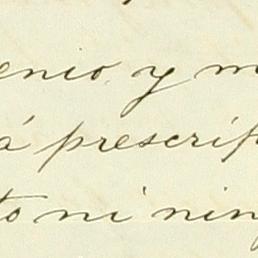 enio y m
á prescrip
to ni nin